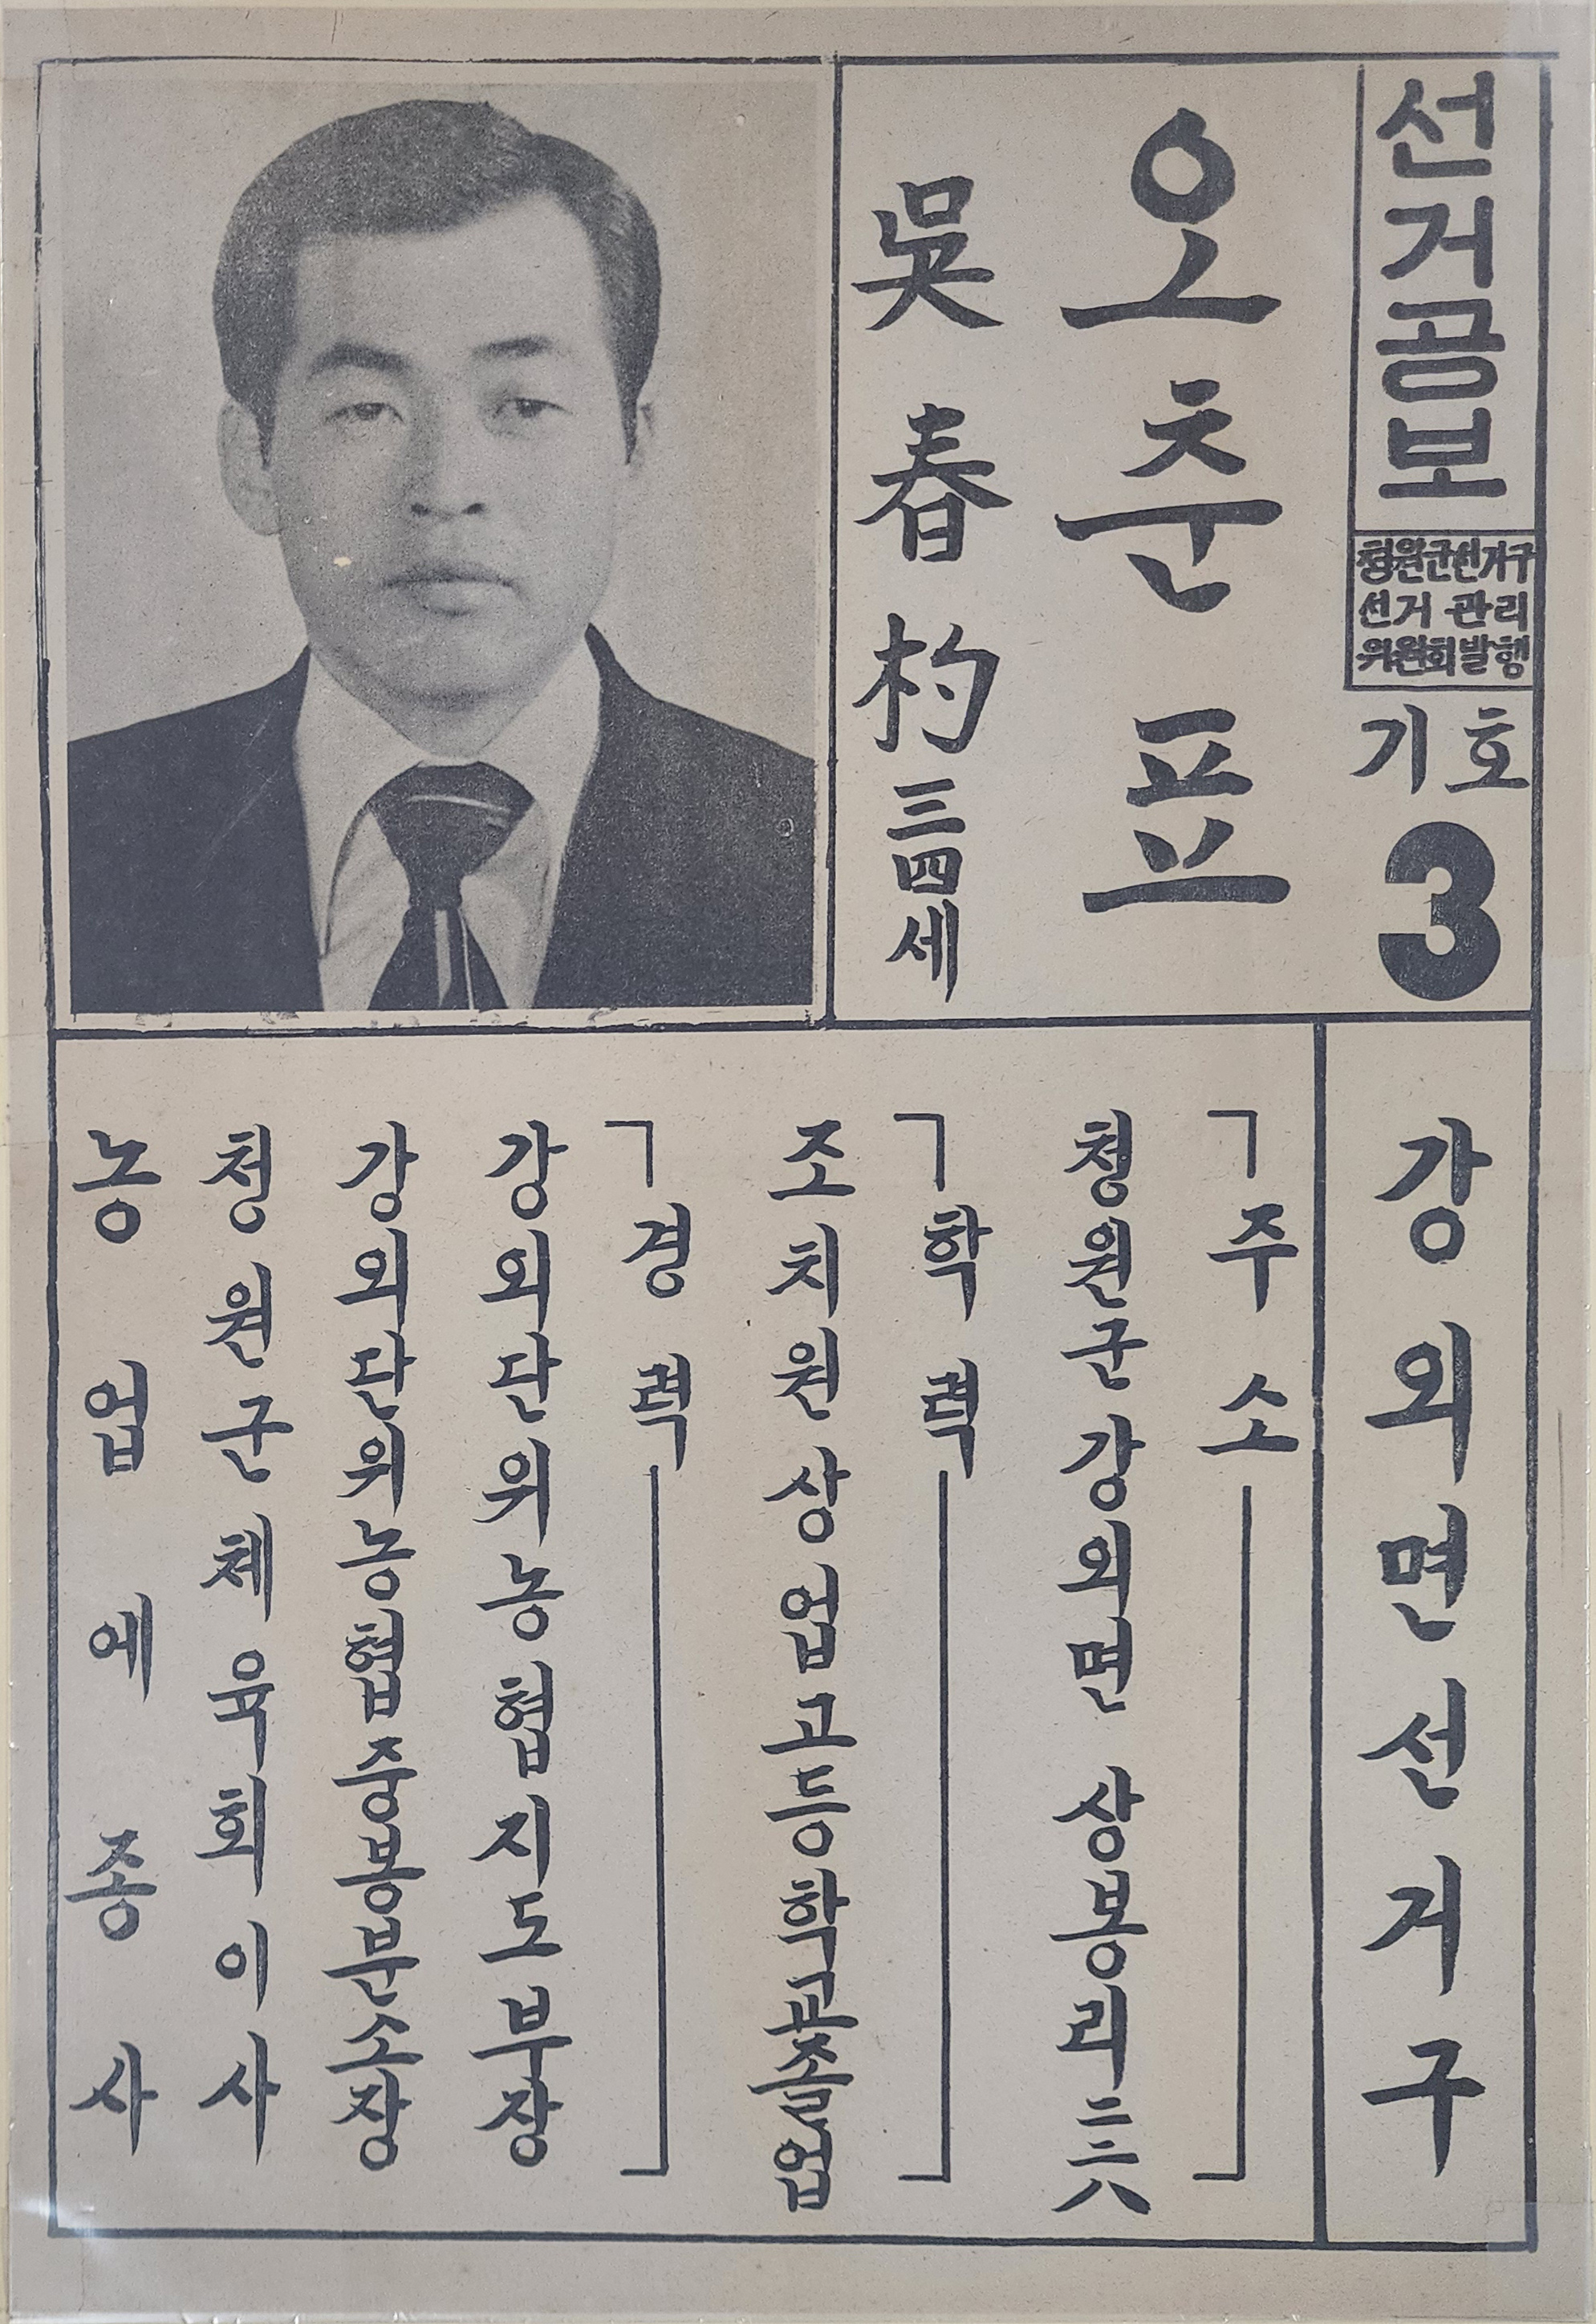 선거공보
청원군선거구
선거 관리
위원회발행
기호
3
오춘표
吳春杓 三四세
강외면선거구
주소
청원군 강외면 상봉리
학력
조치원상업고등학교졸업
경력
강외단위농협지도부장
강외단위농협중봉분소장
청원군체육회이사
농업에종사